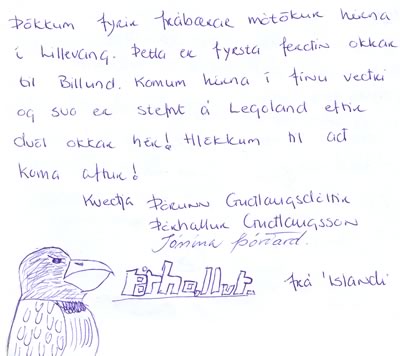 Þökkum fyrir frábærar mótökur hérna
í Lillevang. Þetta er fyrsta ferðin okkar
til Billund. Komum hérna í fínu veðri
og svo er stefnt á Legoland eftir
dvöl okkar hér! Hlökkum til að
koma aftur!
Kveðja Þórunn Guðlaugsdóttir
Þórhallur Guðlaugsson
Jónína
Þórhallur. frá Íslandi